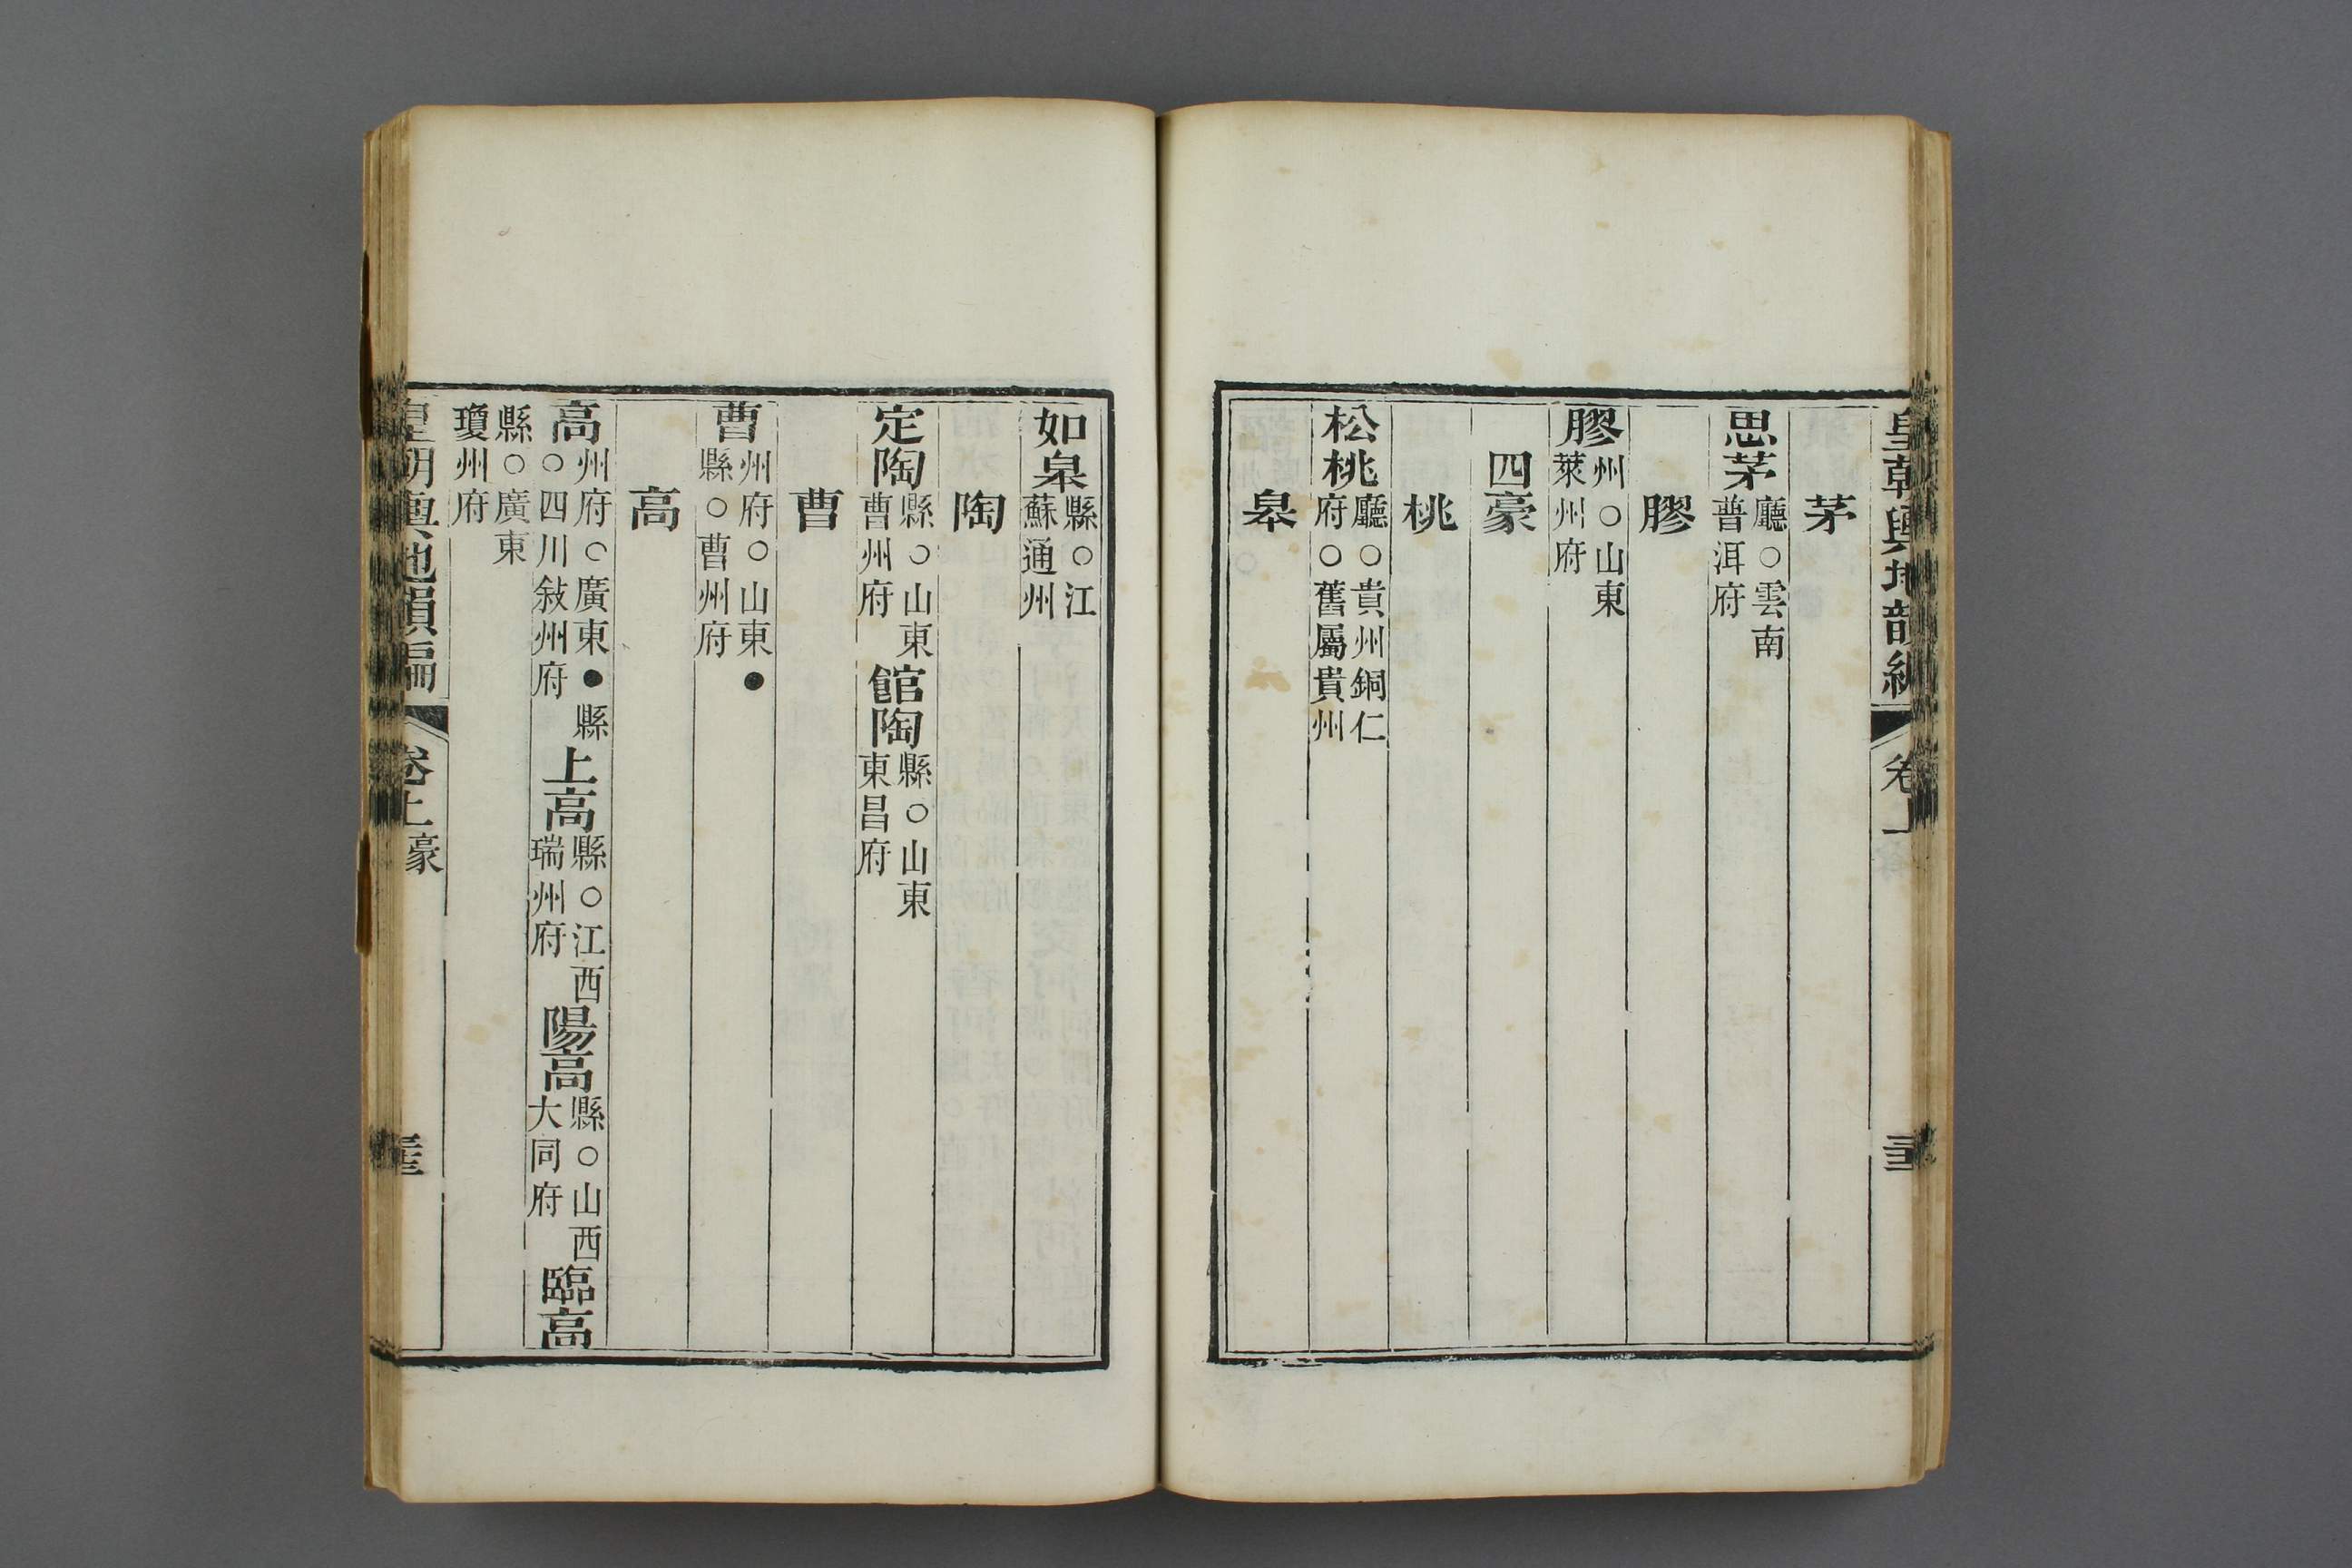 皇朝輿地韻編 卷上
茅
思茅廳○雲南普洱府
膠
膠州○山東萊州府
四豪
桃
松桃廳○貴州銅仁府○舊屬貴州
皋
如皋縣○江蘇通州
陶
定陶縣○山東曹州府館陶縣○山東東昌府
曹
曹州府○山東●縣○曹州府
高
高州府○廣東●縣○四川敍州府上高縣○江西瑞州府陽高縣○山西大同府臨高
縣○廣東瓊州府
皇朝輿地韻編 卷上豪